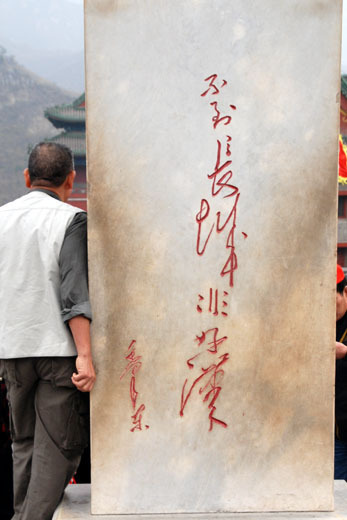 不到長城非好漢
毛澤东